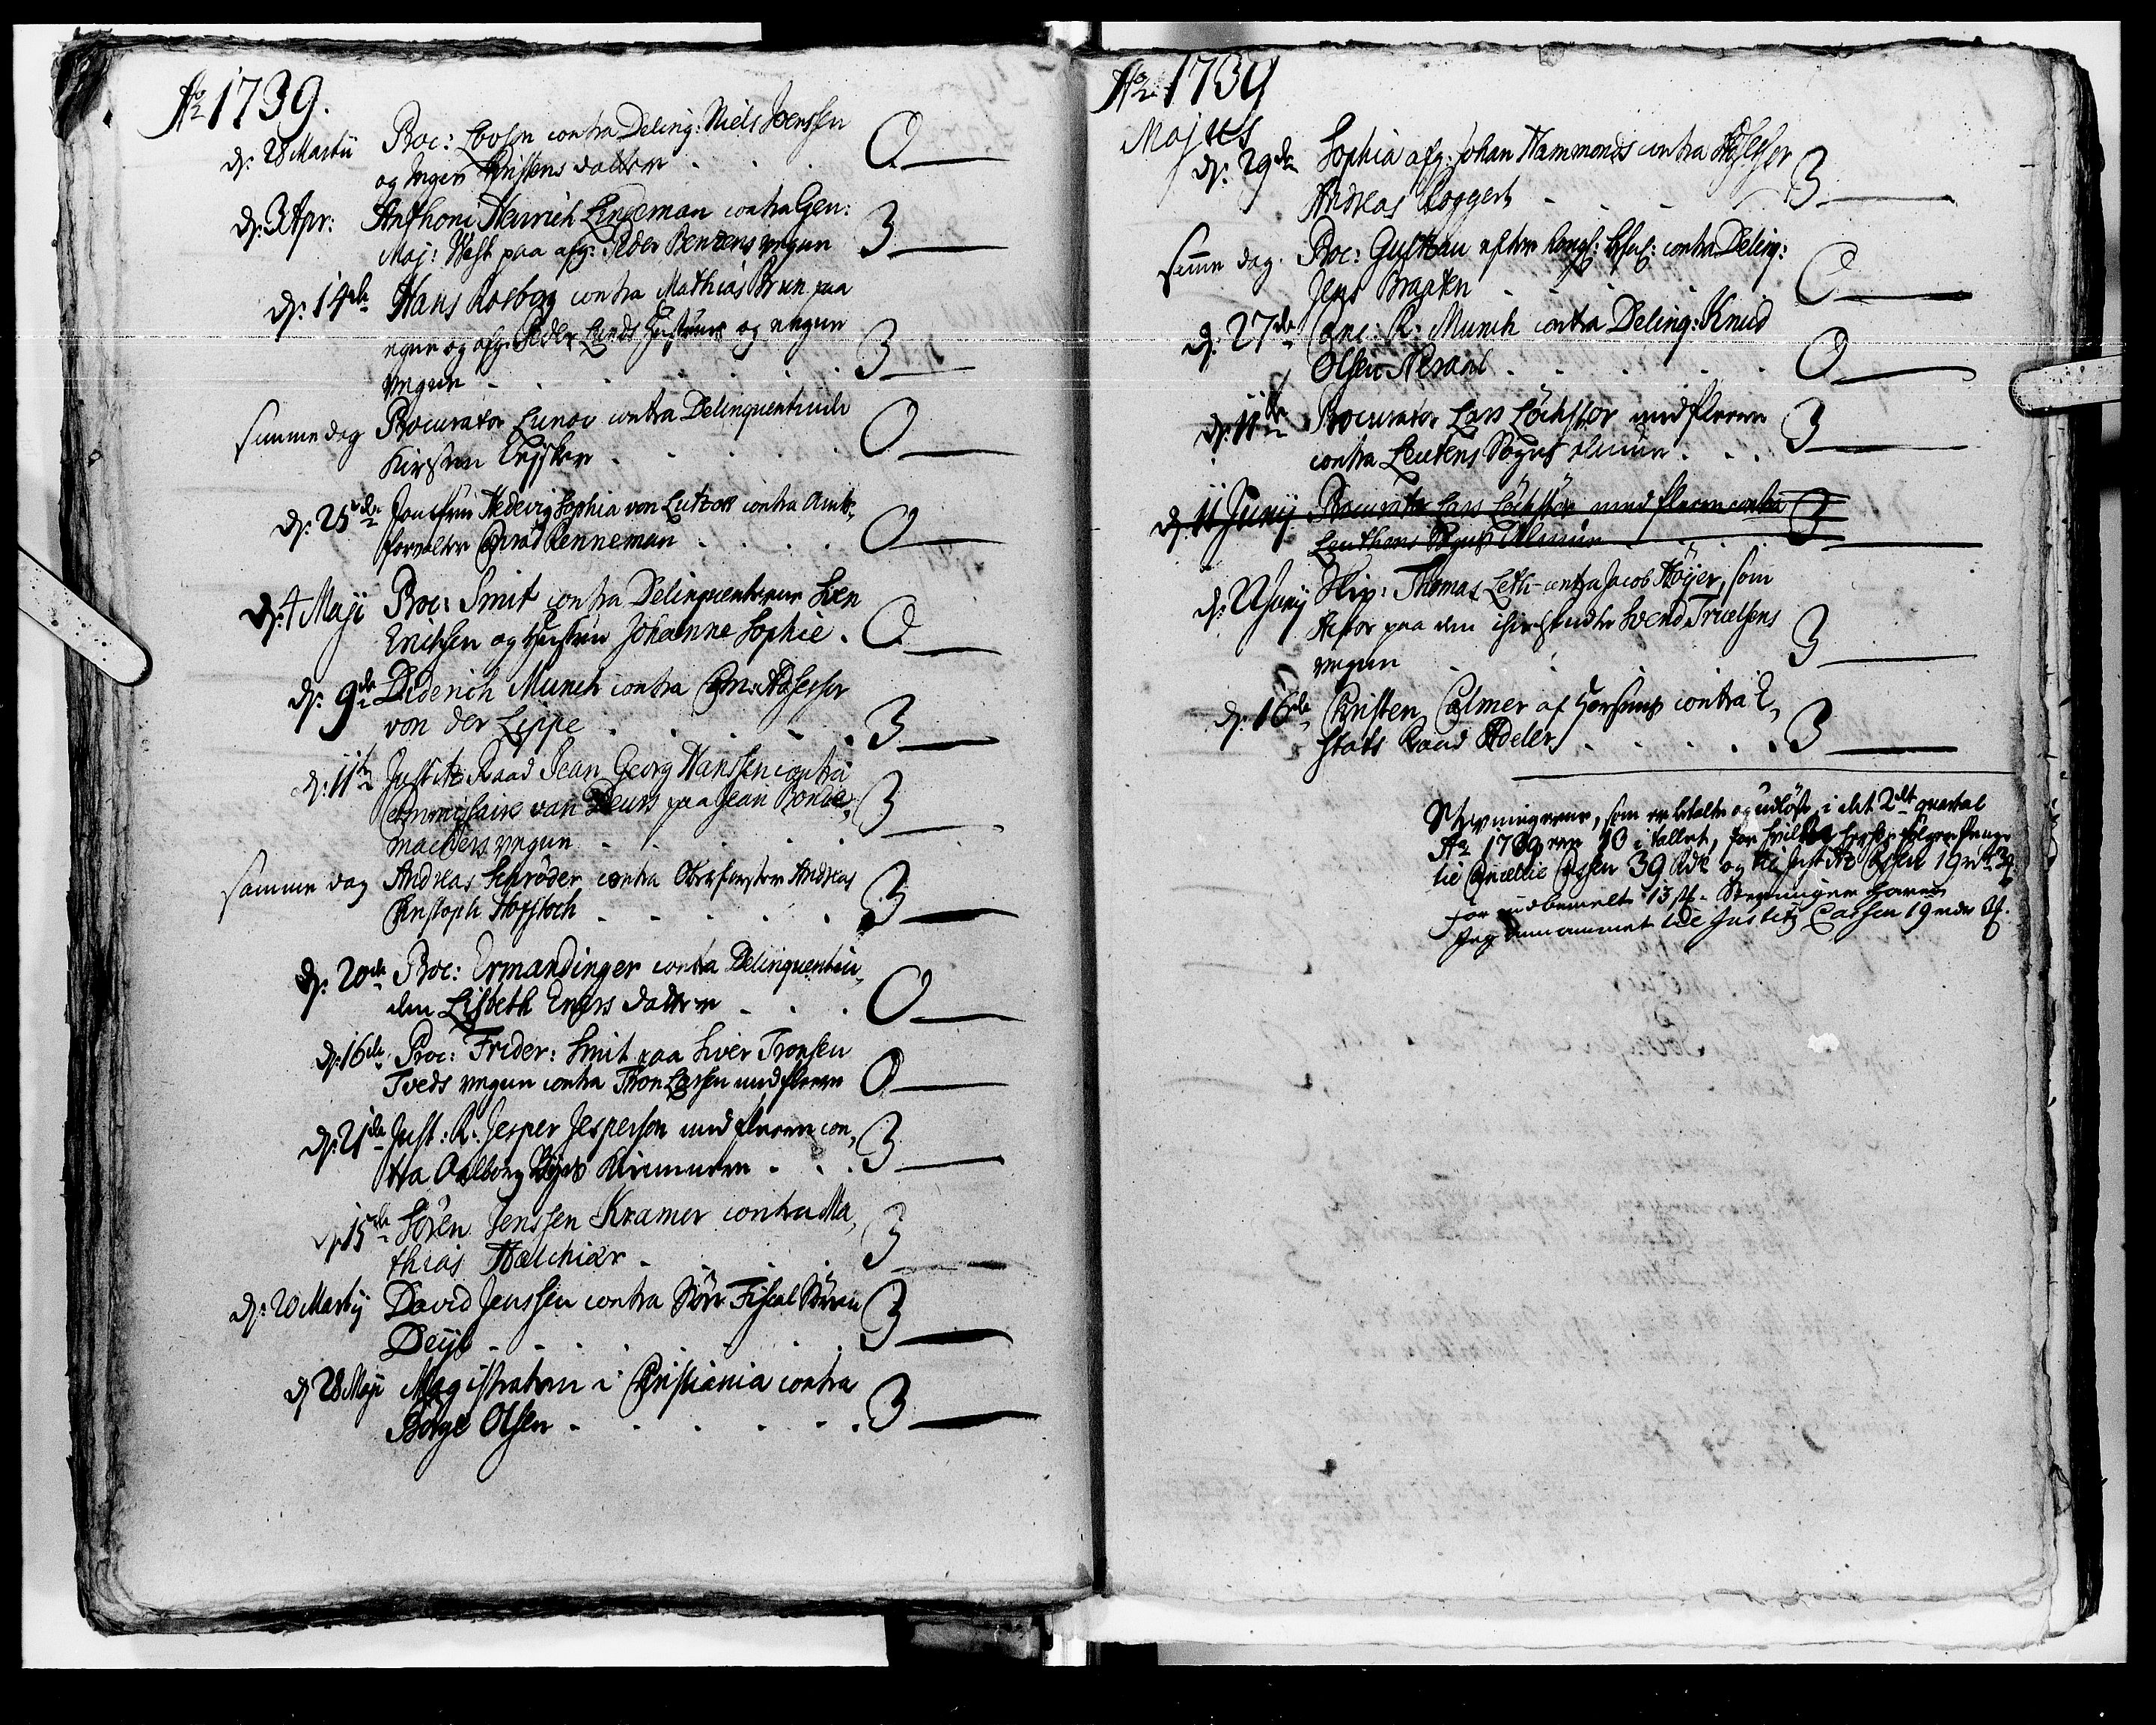 Ao 1739.
d: 28 Martii Proc: Lovsen contra Delinq: Niels Joensen
og Inger Christens datter . . . 0
d: 3 Apr: Anthoni Henrich Lingeman contra Gen:
Maj: West paa afg: Peder Bentzens vegne 3
d: 14de Hans Rosborg contra Mathias Brun paa
egne og afg: Peder Lunds Hustrues og egne
vegne . . . 3
samme dag Procurator Lunov contra Delinquentinde
Kirsten . . . 0
d: 25de Jomfru Hedevig Sophia von Lutzow contra Amt-
forvalter Conrad Renneman . . . 0
d: 4 Maji Proc: Smit contra Delinquenterne Sven
Erichsen og Hustru Johanne Sophie . 0
d: 9de Diderich Munch contra Cam: Assessor
von der Lippe . . . 3
d: 11te Justitz Raad Jean Georg Hanssen contra
Commissaire van Deurs paa Jean
machers vegne . . . 3
samme dag Andreas Schrøder contra Oberførster Andreas
Christoph . . . 3
d: 20de Proc: Ermandinger contra Delinquentin-
den Lisbeth Enersdatter . . . 0
d: 16de Proc: Frider: Smit paa Siver Tronsen
Tveds vegne contra Tron Larsen med fleere 0
d: 21de Just: R: Jesper Jesperson med fleere con-
tra Aalborg Byes Kiemnere . . . 3
d: 15de Sören Jenssen Kramer contra Ma-
thias . . . 3
d: 20 Martij David Jenssen contra Fiscal Sören
. . . 3
d: 28 Maji Magistraten i Christiania contra
Børge Olsen . . . 3
Ao 1739
Majus
d: 29de Sophia afg: Johan Hammonds contra Assessor
Andreas Roggert . . . 3
samme dag. Proc: Gustau efter Kongl: Befal: contra Delinq:
Jens Braaten . . . 0
d: 27de Canc: R: Munch contra Delinq: Knud
Olsen . . . 0
d: 11te Procurator Lars Löchstør med fleere
contra Leutens Sogns Almue . . . 3
d: 11 Junij Procurator Lars Löchstør med fleere contra
Leuthens Sogns Almue . . . 3
d: Junij Skip: Thomas Leth contra Jacob Höyer, som
Actor paa den Svend Truelsens
vegne . . . 3
d: 16de Christen Calmer af Horsens contra E-
stats Raad Adeler . . . 3
Stevningerne, som er betalte og udløste i det 2det quartal
Ao 1739 ere 13 i tallet, for hvilke følger penge
til Cancellie Cassen 39 Rdr og til Justitz Cassen 19 rdr 3
for indbemelte 13 st: Stevninger haver
jeg annammet til Justitz Cassen 19 rdr